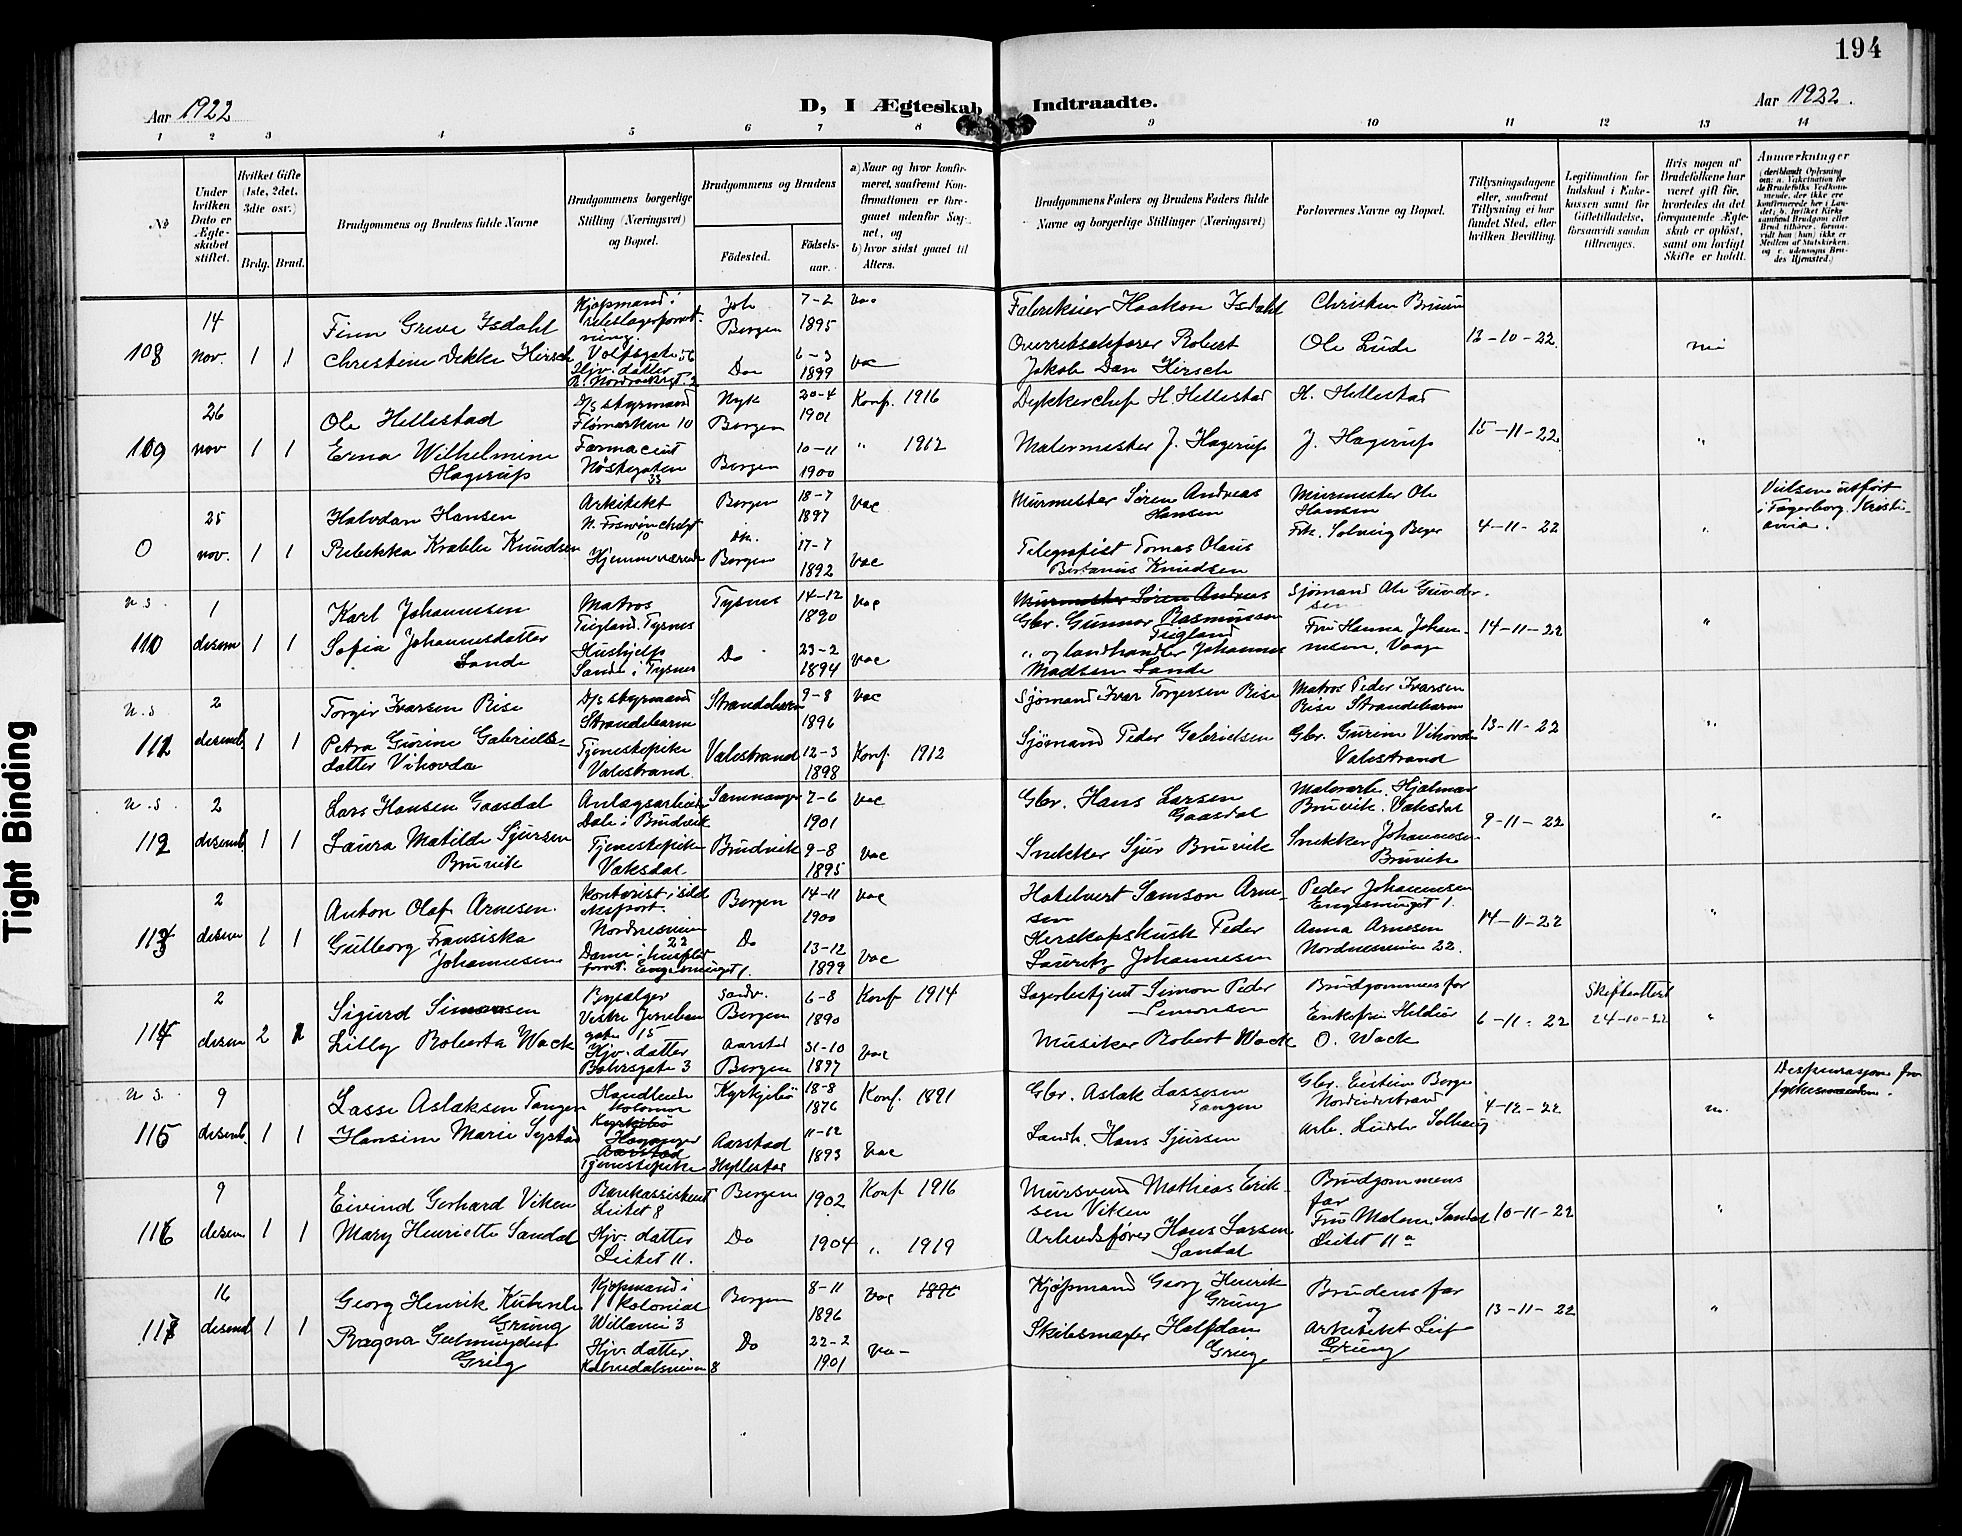 194
Aar 1922
D, I Ægteskab Indtraadte.
Aar 1922.
1 2 3 4 5 6 7 8 9 10 11 12 13 14
No
Under hvilken Dato er Ægteskabet stiftet.
Hvilket Gifte (1ste, 2det, 3die osv.)
Brdg. Brud.
Brudgommens og Brudens fulde Navne
Brudgommens borgerlige Stilling (Næringsvei) og Bopæl.
Brudgommens og Brudens
Fødested.
Fødselsaar.
a) Naar og hvor konfirmeret, saafremt Konfirmationen er foregaaet udenfor Sognet, og
b) hvor sidst gaaet til Alters.
Brudgommens Faders og Brudens Faders fulde Navne og borgerlige Stillinger (Næringsvei)
Forlovernes Navne og Bopæl.
Tillysningsdagene eller, saafremt Tillysning ei har fundet Sted, efter hvilken Bevilling.
Legitimation for Indskud i Enkekassen samt for Giftetilladelse, forsaavidt saadan tiltrænges.
Hvis nogen af Brudefolkene har været gift før, hvorledes da det foregaaende Ægteskab er opløst, samt om lovligt Skifte er holdt.
Anmærkninger
108
14 nov.
1 1
Finn Greve Isdahl
Christine Dekke Hirsch
Kjøpmand i
Hjv. datter
Joh.
Bergen
Do
7-2 1895
6-3 1899
vac
vac
Fabrikeier Haakon Isdahl
Overretssakfører Robert
Jakob Dan Hirsch
Christen Bruun
Ole Lude
12-10-22
nei
109
26 nov
1 1
Ole Hellestad
Erna Wilhelmine
Hagerup
D/s styrmand
Fløimarken 10
Farmaceut
Nøstegaten
33
Nyk
Bergen
Bergen
20-4 1901
10-11 1900
Konf. 1916
" 1912
Dykkerchef H. Hellestad
Malermester J. Hagerup
H. Hellestad
J. Hagerup
15-11-22
"
0
25 nov.
1 1
Halvdan Hansen
Rebekka Krabbe Knudsen
Arkitekt
10
Hjemmeværende
Bergen
Bergen
18-7 1897
17-7 1892
vac
vac
Murmester Søren Andreas
Hansen
Telegrafist Tomas Olaus
Bertanius Knudsen
Murmester Ole
Hansen
Frk. Solveig Beyer
4-11-22
"
Vielsen utført
i Fagerborg, Kristiania.
u.s.
110
1 desem
1 1
Karl Johannesen
Sofia Johannesdatter
Lande
Matros
Tveitland. Tysnes
Hushjelp
Sande i Tysnes
Tysnes
Do
14-12 1890
23-2 1894
vac
vac
Murmester Søren Andreas
Gbr. Gunnar Rasmussen
" og landhandler Johannes
Madsen Lande
Sjømand Ole Gundersen
Fru Hanna Johannesen, Vaage
14-11-22
"
u.s
111
2 desemb.
1 1
Torgeir Ivarsen Rise
Petra Gurine Gabrielsdatter Vihovda
D/s styrmand
Strandebarm
Tjenestepike
Valestrand
Strandebarm
Valestrand
9-8 1896
12-3 1898
vac
Konf. 1912
Sjømand Ivar Torgersen Rise
Sjømand Peder Gabrielsen
Matros Peder Ivarsen
Rise Strandebarm
Gbr. Gurine Vihovda
Valestrand
13-11-22
"
u.s
112
2 desemb.
1 1
Lars Hansen Gaasdal
Laura Matilde Sjursen
Bruvik
Anlægsarbeider
Dale i Bruvik
Tjenestepike
Vaksdal
Samnanger
Brudvik
7-6 1901
9-8 1895
vac
vac
Gbr. Hans Larsen
Gaasdal
Snekker Sjur Bruvik
Malerarb. Hjalmar
Bruvik. Vaksdal
Snekker Johannesen
Bruvik
9-11-22
"
113
2 desem
1 1
Anton Olaf Arnesen.
Gulborg Fransiska
Johannesen
Kontorist i sild
eksport.
Nordnesveien
22
Engesmuget 1.
Bergen
Do
14-11 1900
13-12 1899
vac
vac
Hotelvert Samson Arnesen
Herskapskusk Peder
Lauritz Johannesen
Peder Johannesen
Engesmuget 1.
Anna Arnesen
Nordnesveien 22.
14-11-22
"
114
2 desem
2 1
Sigurd Simonsen
Lilly Roberta Wack
Bysælger
Vestre Jernbanegate 15
Hjv. datter
Bøhrsgate 3
Sandv.
Bergen
Aarstad
Bergen
6-8 1890
31-10 1897
Konf 1914
vac
Lagerbetjent Simon Peder
Simonsen
Musiker Robert Wack
Brudgommens far
Enkefru Hildur
O. Wack
6-11-22
Skifteattest
24-10-22
"
u.s.
115
9 desemb.
1 1
Lasse Aslaksen Tangen
Hansine Marie Systad
Handlende
kolonial
Kyrkjebø
Høyanger
Aarstad
Tjenestepike
Kyrkjebø
Aarstad
Hyllestad
18-8 1876
11-12 1893
Konf. 1891
Vac
Gbr. Aslak Lassesen
Tangen
Landh. Hans Sjursen
Gbr. Eistein Berge
Nordeidestrand
Arb. Ludde Solhaug
4-12-22
nei
Dispensasjon fra
fylkesmanden.
116
9 desem
1 1
Eivind Gerhard Viken
Mary Henriette Sandal
Bankassistent
Leitet 8
Hjv. datter
Leitet 11.
Bergen
Do
1902
1904
Konf 1916
" 1919
Mursvend Mathias Eriksen Viken
Arbeidsfører Hans Larsen
Sandal
Brudgommens
far
Fru Malene Sandal
Leitet 11 a
10-11-22
"
117
16 desemb
1 1
Georg Henrik Kuhnle
Grung
Ragna Geelmuyden
Grieg
Kjøpmand i
kolonial
Willamei 3
Hjv. datter
Kalvedalsveien 8
Bergen
Do
8-11 1896
22-2 1901
vac 1896
va-
Kjøpmand Georg Henrik
Grung
Skibsmægler Halfdan
Grieg
Brudens far
Arkitekt Leif
Grung
13-11-22
"
Tight Binding